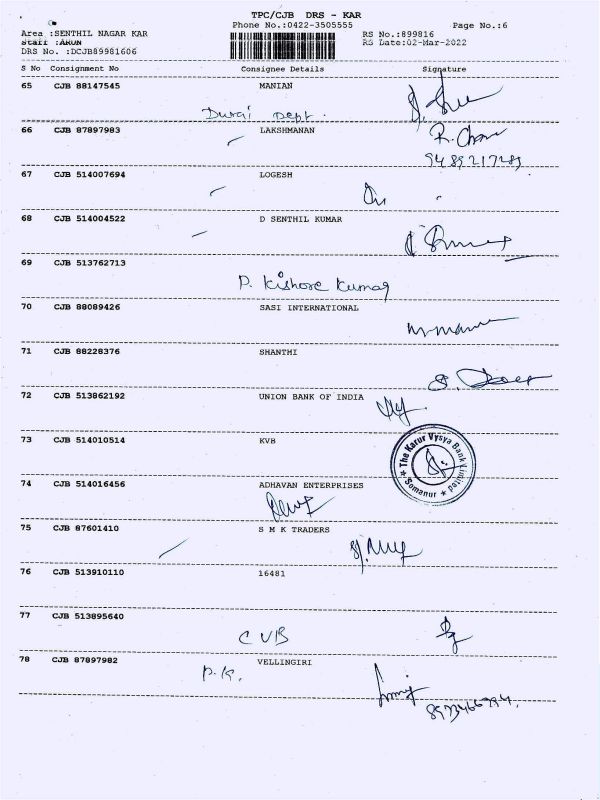 TPC/CJB DRS - KAR
Phone No.:0422-3505555 Page No.:6
Area :SENTHIL NAGAR KAR RS No.:899816
Staff :ARUN RS Date:02-Mar-2022
DRS No. :DCJB89981606
S No Consignment No Consignee Details Signature
65 CJB 88147545 MANIAN
Durai Dept.
66 CJB 87897983 LAKSHMANAN
9489217289
67 CJB 514007694 LOGESH
68 CJB 514004522 D SENTHIL KUMAR
69 CJB 513762713
P. Kishore Kumar
70 CJB 88089426 SASI INTERNATIONAL
71 CJB 88228376 SHANTHI
72 CJB 513862192 UNION BANK OF INDIA
73 CJB 514010514 KVB
The Karur Vysya Bank Limited
Somanur
74 CJB 514016456 ADHAVAN ENTERPRISES
75 CJB 87601410 S M K TRADERS
76 CJB 513910110 16481
77 CJB 513895640
CUB
78 CJB 87897982 VELLINGIRI
P.K.